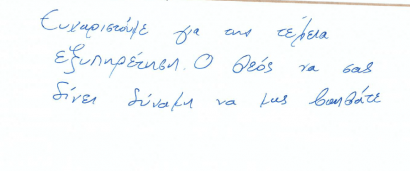 Ευχαριστούμε για της τέρεια
εξυπηρέτηση. Ο Θεός να σας
δίνει δύναμη να μας βοηθάτε